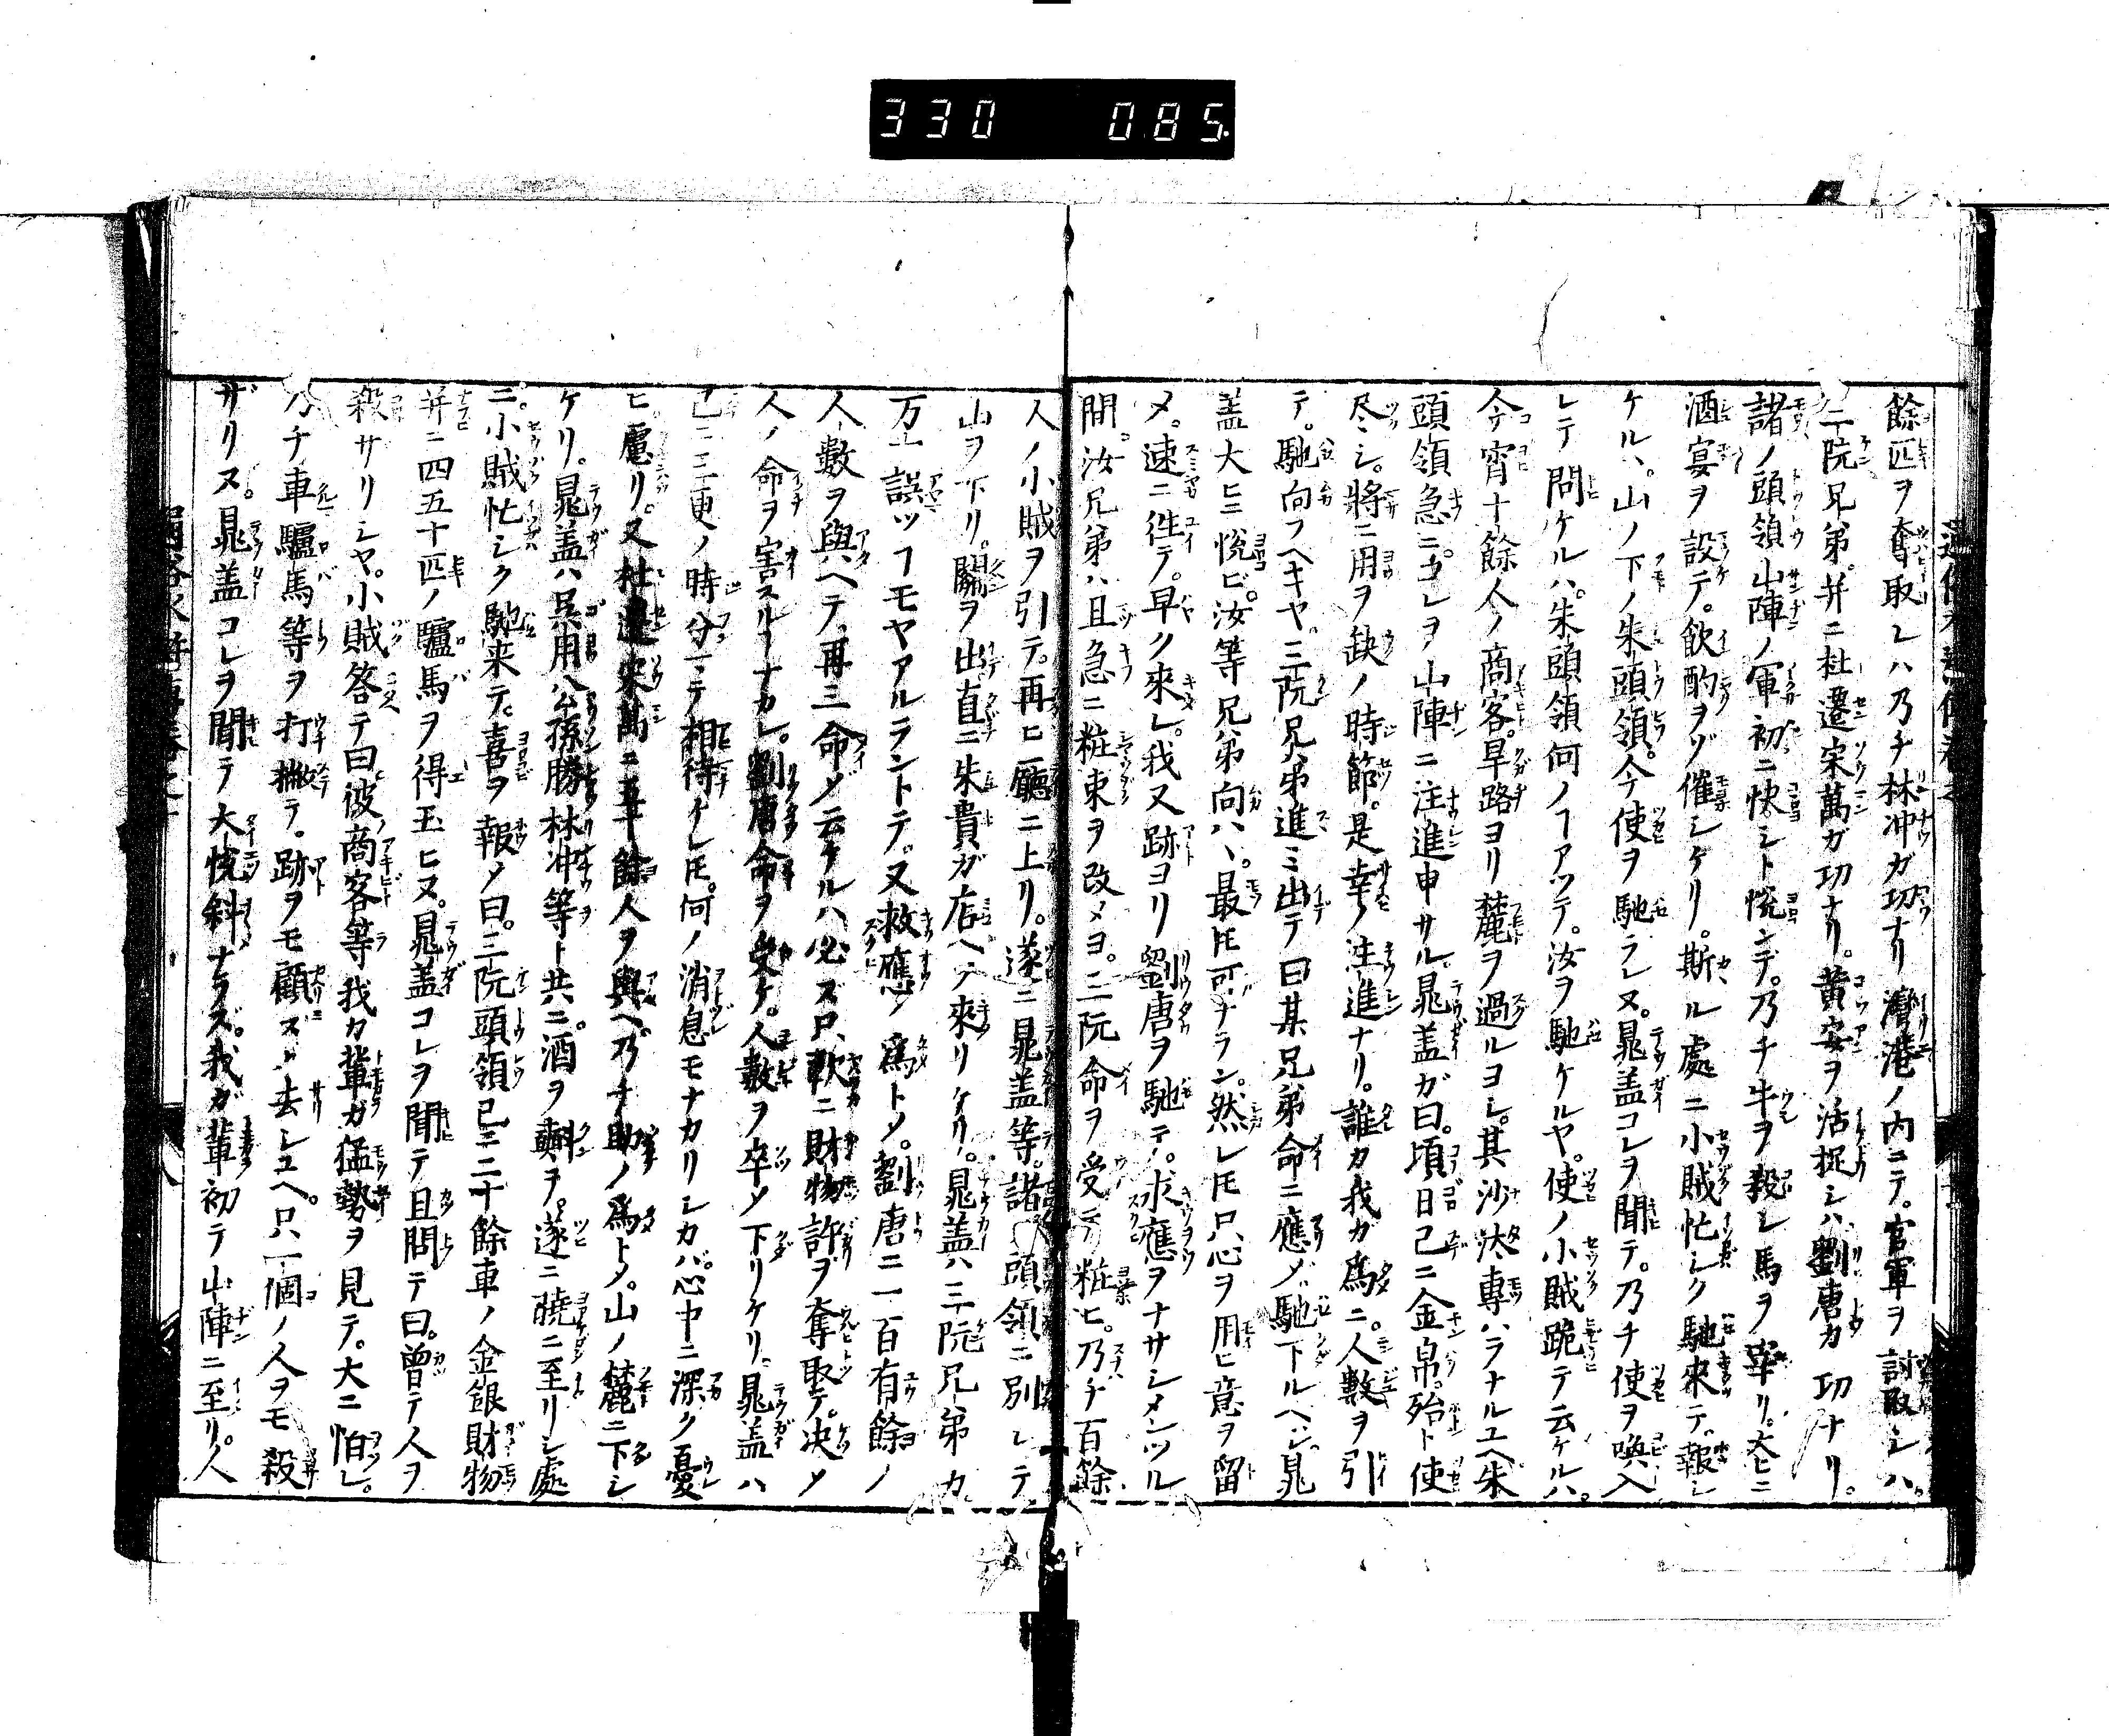 330 085
餘匹ヲ奪取レハ乃チ林冲ガ功ナリ灣港ノ内ニテ。官軍ヲ討取シハ。
二阮兄弟。并ニ杜遷宋萬ガ功ナリ。黄安ヲ活捉シハ劉唐カ功ナリ。
諸ノ頭領山陣ノ軍初ニ快シト悦ンデ。乃チ牛ヲ殺レ馬ヲ宰リ。大ヒニ
酒宴ヲ設テ。飲酌ヲゾ催シケリ。斯ル處ニ小賊忙シク馳來テ。報レ
ケルハ。山ノ下ノ朱頭領。今使ヲ馳ラレヌ。晁盖コレヲ聞テ。乃チ使ヲ喚入
レテ問ケルハ。朱頭領何ノヿアツテ。汝ヲ馳ケルヤ。使ノ小賊跪テ云ケルハ。
今宵十餘人ノ商客。旱路ヨリ麓ヲ過ルヨレ。其沙汰專ハラナルユヘ朱
頭領急ニ。コレヲ山陣ニ注進申サル。晁盖ガ曰。頃日己ニ金帛。殆ト使
尽シ。將ニ用ヲ缺ノ時節。是幸ノ注進ナリ。誰カ我ガ爲ニ。人數ヲ引
テ。馳向フヘキヤ。三阮兄弟進ミ出テ曰某兄弟命ニ應ゾ馳下ルヘシ。晁
盖大ヒニ悦ビ。汝等兄弟向ハヽ。最𪜈可ナラン。然レ𪜈只心ヲ用ヒ意ヲ留
メ。速ニ徃テ。早ク來レ。我又跡ヨリ劉唐ヲ馳テ。求應ヲナサシメンツル
間。汝兄弟ハ且急ニ粧束ヲ改メヨ。二阮命ヲ受テ粧ヒ。乃チ百餘
人ノ小賊ヲ引テ。再ヒ廳ニ上リ。遂ニ晁盖等。諸頭領ニ別レテ
山ヲ下リ。關ヲ出直ニ朱貴ガ店ヘテ來リケリ。晁盖ハ三阮兄弟カ
万一誤ツヿモヤアルラントテ。又救應ノ爲トメ。劉唐ニ一百有餘ノ
人數ヲ與ヘテ。再三命ゾ云ケルハ必ズ只軟ニ財物許ヲ奪取テ。决メ
人ノ命ヲ害スルヿナカレ。劉唐命ヲ受ケ。人數ヲ卒ソ下リケリ。晁盖ハ
己ニ三更ノ時分ニテ相待イレ𪜈。何ノ消息モナカリシカバ。心中ニ深ク憂
ヒ慮リ。又杜遷宋萬ニ五十餘人ヲ與ヘ。乃チ助ノ爲トメ。山ノ麓ニ下シ
ケリ。晁盖ハ呉用公孫勝林冲等ト共ニ。酒ヲ斟ヲ。遂ニ曉ニ至リシ處
ニ。小賊忙シク馳来テ。喜ヲ報メ曰。三阮頭領已ニ二十餘車ノ金銀財物
并ニ四五十匹ノ驢馬ヲ得玉ヒヌ。晁盖コレヲ聞テ且問テ曰。曽テ人ヲ
殺サリシヤ。小賊答テ曰彼商客等我カ輩ガ猛勢ヲ見テ。大ニ怕レ。
乃チ車驢馬等ヲ打撇テ。跡ヲモ顧ズメ去レユヘ。只一個ノ人ヲモ殺
ザリヌ。晁盖コレヲ聞テ大悦斜ナラズ。我ガ輩初テ山陣ニ至リ。人